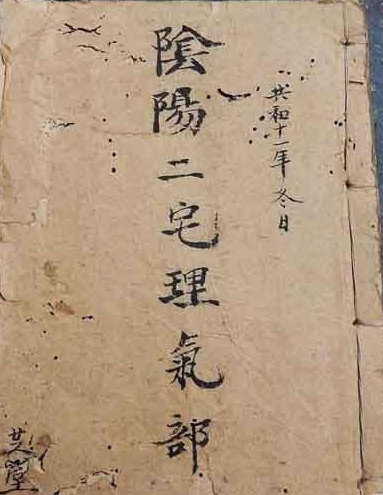 共和十一年冬日
陰陽二宅理氣部